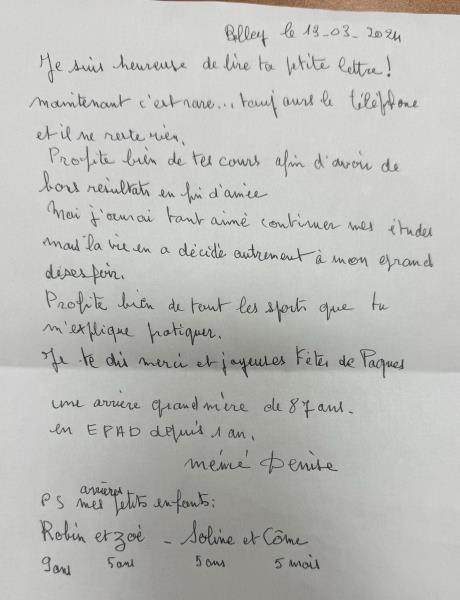 Belley le 13-03-2024
Je suis heureuse de lire ta petite lettre!
maintenant c'est rare... toujours le téléphone
et il ne reste rien.
Profite bien de tes cours afin d'avoir de
bons résultats en fin d'année
Moi j'aurai tant aimé continuer mes études
mais la vie en a décidé autrement à mon grand
désespoir.
Profite bien de tout les sports que tu
m'explique pratiquer.
Je te dis merci et joyeuses Fêtes de Paques
une arrière grand mère de 87 ans.
en EPAD depuis 1 an.
mémé Denise
PS mes arrières petits enfants:
Robin et Zoé - Soline et Côme
9 ans 5 ans 5 ans 5 mois